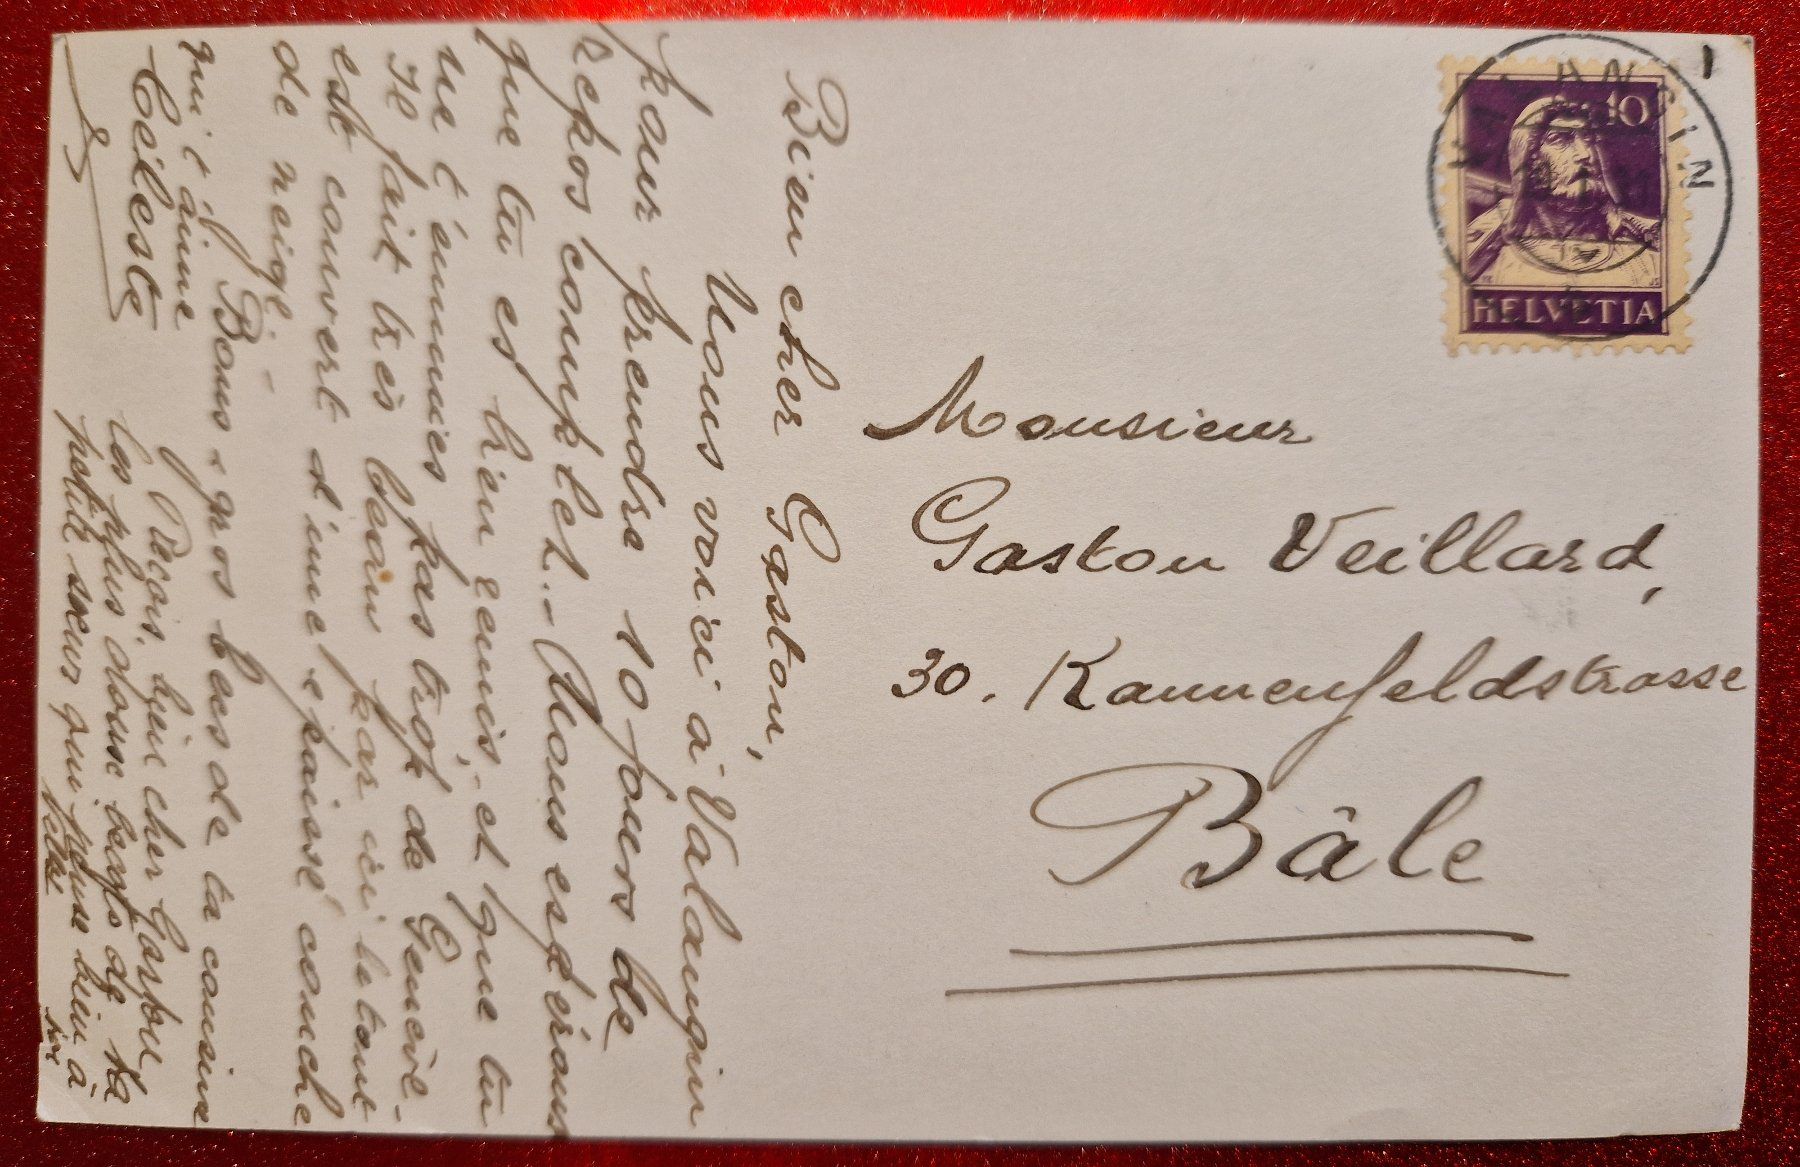 Bien cher Gaston,
Nous voici à Valangin
pour prendre 10 jours de
repos complet. - Nous espérons
que tu es bien remis, et que tu
ne t'ennuies pas trop de Genève. -
Il fait très beau par ici le tout
est couvert d'une épaisse couche
de neige. -
Bons & gros becs de ta cousine
qui t'aime
Céleste
Reçois, bien cher Gaston
les plus doux becs de ta
petite sœur qui pense bien à
toi
VALANGIN
10
HELVETIA
Monsieur
Gaston Veillard,
30. Kannenfeldstrasse
Bâle